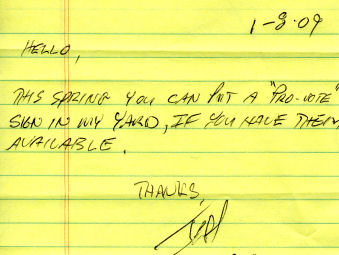 1-8-09
HELLO,
THIS SPRING YOU CAN PUT A "PRO-VOTE"
SIGN IN MY YARD, IF YOU HAVE THEM
AVAILABLE.
THANKS,